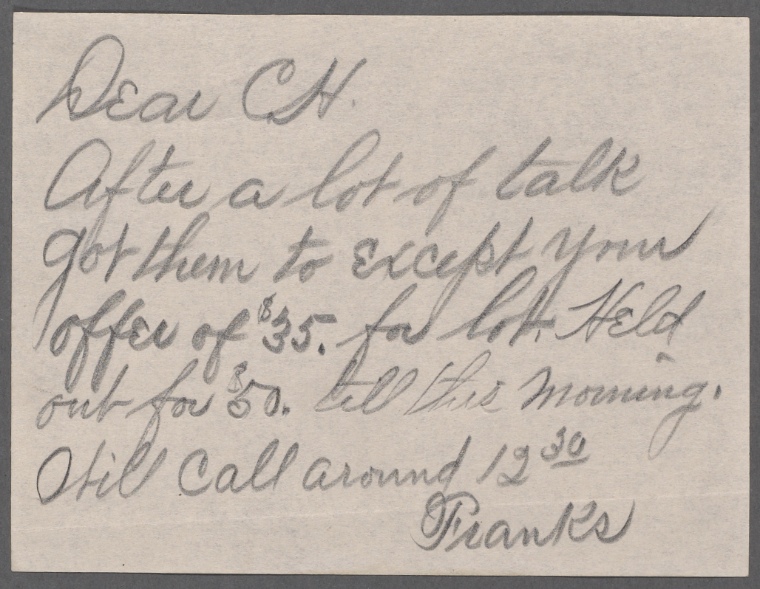 Dear CH.
After a lot of talk
got them to except your
offer of $35. for lot. Held
out for $50. till this morning.
Will call around 12 30
Franks